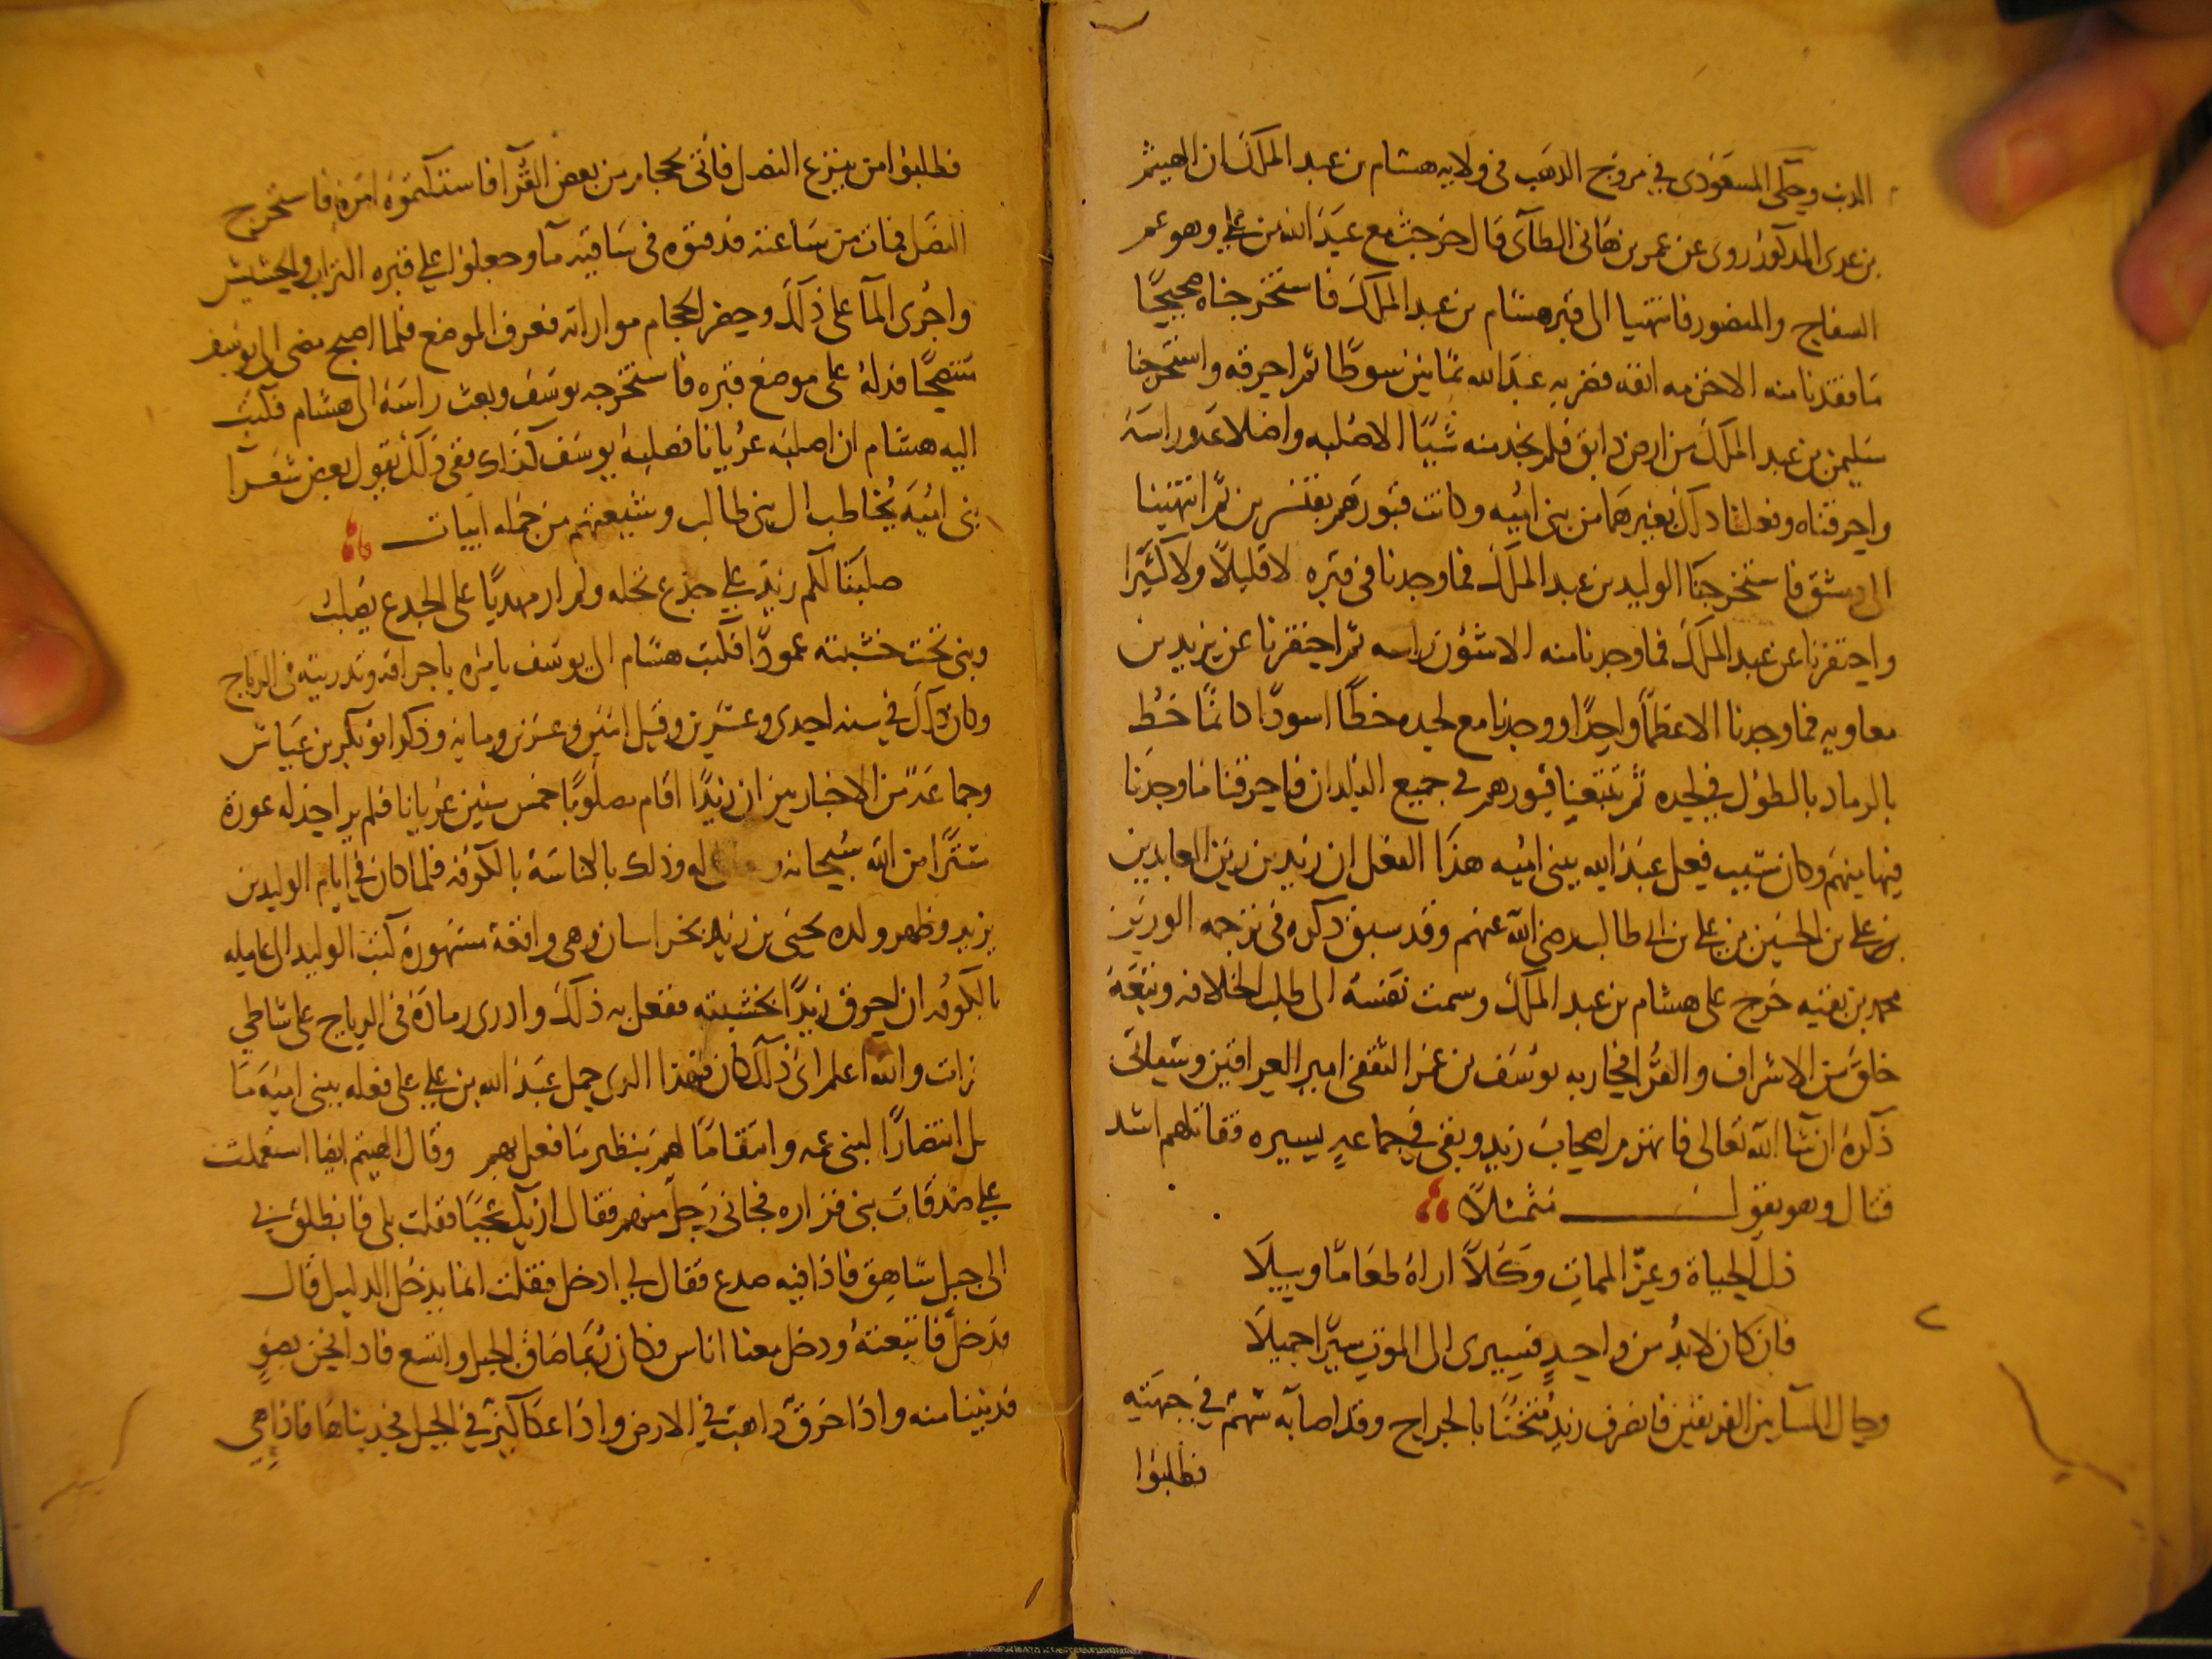 الدب وحكى المسعودى في مروج الذهب فى ولايه هشام بن عبد الملك ان الهيثم
بن عدى المذكور روى عن عمر بن هانى الطآى قال خرجت مع عبد الله بن علي وهو عم
السفاح والمنصور فانتهيا الى قبر هشام بن عبد الملك فاستخرجناه صحيحًا
ما فقدنا منه الا خرمه انفه فضربه عبد الله ثمانين سوطًا ثم احرقه واستخرجنا
سليمن بن عبد الملك من ارض دابق فلم نجد منه شيًا الا صلبه واضلاعه وراسه
واحرقناه وفعلنا ذلك بغيرهما من بنى اميه وكانت قبورهم بقنسرين ثم انتهينا
الى دمشق فاستخرجنا الوليد بن عبد الملك فما وجدنا فى قبره لا قليلًا ولا كثيرا
واحتفرنا عن عبد الملك فما وجدنا منه الا شؤن راسه ثم احتفرنا عن يزيد بن
معاويه فما وجدنا الا عظمًا واحدًا ووجدنا مع لحده خطًا اسودًا كانمًا خُط
بالرماد بالطول في لحده ثم تتبعنا قبورهم فى جميع البلدان فاحرقنا ما وجدنا
فيها منهم وكان سبب فعل عبد الله ببنى اميه هذا الفعل ان زيد بن زين العابدين
بن على بن الحسين بن على بن ابى طالب رضى الله عنهم وقد سبق ذكره فى ترجمه الوزير
محمد بن بقيه خرج على هشام بن عبد الملك وسمت نفسه الى طلب الخلافه وتبعه
خلق من الاشراف والقُرا فحاربه يوسف بن عمر الثقفى امير العراقين وسياتى
ذكره ان شا الله تعالى فانهزم اصحاب زيد وبقى في جماعهٍ يسيره فقاتلهم اشد
قتال وهو يقول متمثلًا
ذل الحياة وعزّ الممات وكلاًّ اراهُ طعامًا وبيلَا
فان كان لابُدّ من واحدٍ فسيرى الى الموت سيرًا جميلَا
وحال المسآ بين الفريقين فانصرف زيد مثخنًا بالجراح وقد اصابه سهم في جبهته
فطلبوا
فطلبوا من ينزع النصل فاتى بحجام من بعض القرى فاستكتموه امره فاستخرج
النصل فمات من ساعته فدفنوه فى ساقية مآ وجعلوا على قبره التراب والحشيش
واجرى المآ على ذلك وحضر الحجام مواراته فعرف الموضع فلما اصبح مضى الى يوسف
متنصحًا فدله على موضع قبره فاستخرجه يوسف وبعث راسه الى هشام فكتب
اليه هشام ان اصلبه عريانا فصلبه يوسف كذلك ففى ذلك يقول بعض شعرآ
بنى اميه يُخاطب ال بنى طالب وشيعتهم من جمله ابيات
صلبنا لكم زيدً على جذع نخله ولم ار مهديًا على الجذع يصلبُ
وبنى تحت خشبته عمودًا فكتب هشام الى يوسف يامره باحراقه وتذريته فى الرياح
وكان ذلك في سنه احدى وعشرين وقيل اثنين وعشرين ومايه وذكر ابو بكر بن عياش
وجماعة من الاخباريين ان زيدًا اقام مصلوبًا خمس سنين عريانا فلم ير احد له عورة
سترًا من الله سبحانه له وذلك بالكناسة بالكوفه فلما كان في ايام الوليد بن
يزيد وظهر ولده يحيى بن زيد بخراسان وهى واقعة مشهورة كتب الوليد الى عامله
بالكوفه ان احرق زيدًا بخشبته ففعل به ذلك واذرى رماده فى الرياح على شاطى
الفرات والله اعلم اى ذلك كان فهذا الذى حمل عبد الله بن علي على فعله ببنى اميه ما
فعل انتصارًا لبنى عمه وانتقامًا لهم بنظير ما فعل بهم وقال الهيثم ايضا استعملت
على صدقات بنى فزاره فجانى رجل منهم فقال اريك عجبًا فقلت بلى فانطلق بى
الى جبل شاهق فاذا فيه صدع فقال لي ادخل فقلت انما يدخل الدليل قال
فدخل فاتبعته ودخل معنا اناس فكان ربما ضاق الجبل واتسع فاذا نحن بضوء
فدنينا منه واذا خرق ذاهب في الارض واذا عكاكيز في الجبل فجذبناها فاذا هى